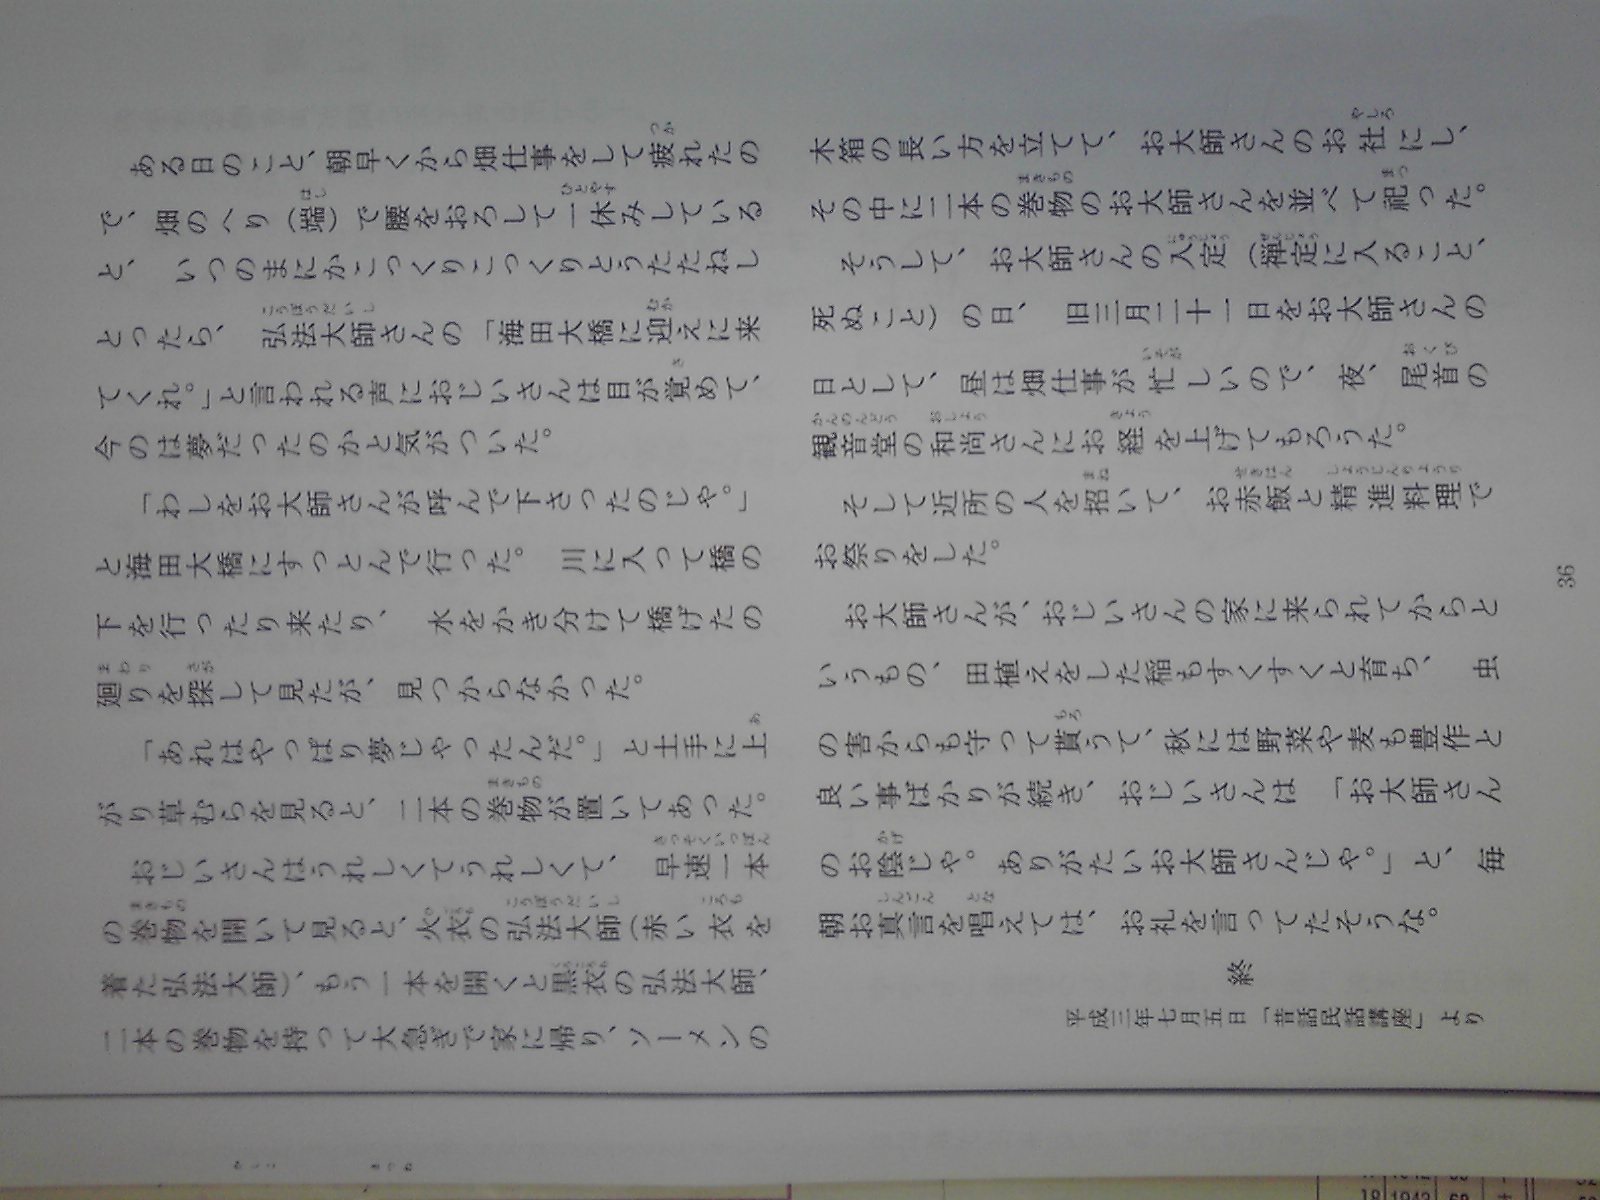 ある日のこと、朝早くから畑仕事をして疲れたの
で、畑のへり（端）で腰をおろして一休みしている
と、いつのまにかこっくりこっくりとうたたねし
とったら、弘法大師さんの「海田大橋に迎えに来
てくれ。」と言われる声におじいさんは目が覚めて、
今のは夢だったのかと気がついた。
「わしをお大師さんが呼んで下さったのじゃ。」
と海田大橋にすっとんで行った。川に入って橋の
下を行ったり来たり、水をかき分けて橋げたの
廻りを探して見たが、見つからなかった。
「あれはやっぱり夢じゃったんだ。」と土手に上
がり草むらを見ると、二本の巻物が置いてあった。
おじいさんはうれしくてうれしくて、早速一本
の巻物を開いて見ると、火衣の弘法大師（赤い衣を
着た弘法大師）、もう一本を開くと黒衣の弘法大師、
二本の巻物を持って大急ぎで家に帰り、ソーメンの
木箱の長い方を立てて、お大師さんのお社にし、
その中に二本の巻物のお大師さんを並べて祀った。
そうして、お大師さんの入定（禅定に入ること、
死ぬこと）の日、旧三月二十一日をお大師さんの
日として、昼は畑仕事が忙しいので、夜、尾首の
観音堂の和尚さんにお経を上げてもろうた。
そして近所の人を招いて、お赤飯と精進料理で
お祭りをした。
お大師さんが、おじいさんの家に来られてからと
いうもの、田植えをした稲もすくすくと育ち、虫
の害からも守って貰うて、秋には野菜や麦も豊作と
良い事ばかりが続き、おじいさんは「お大師さん
のお陰じゃ。ありがたいお大師さんじゃ。」と、毎
朝お真言を唱えては、お礼を言ってたそうな。
終
平成三年七月五日「昔話民話講座」より
36
18 1943 68